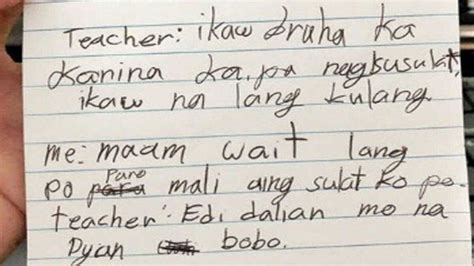 Teacher: ikaw bruha ka
kanina ka pa nagbusulat,
ikaw na lang kulang
me: maam wait lang
Paro
po para mali aing sulat ko po.
teacher: Edi dalian mo na
Dyan bobo.